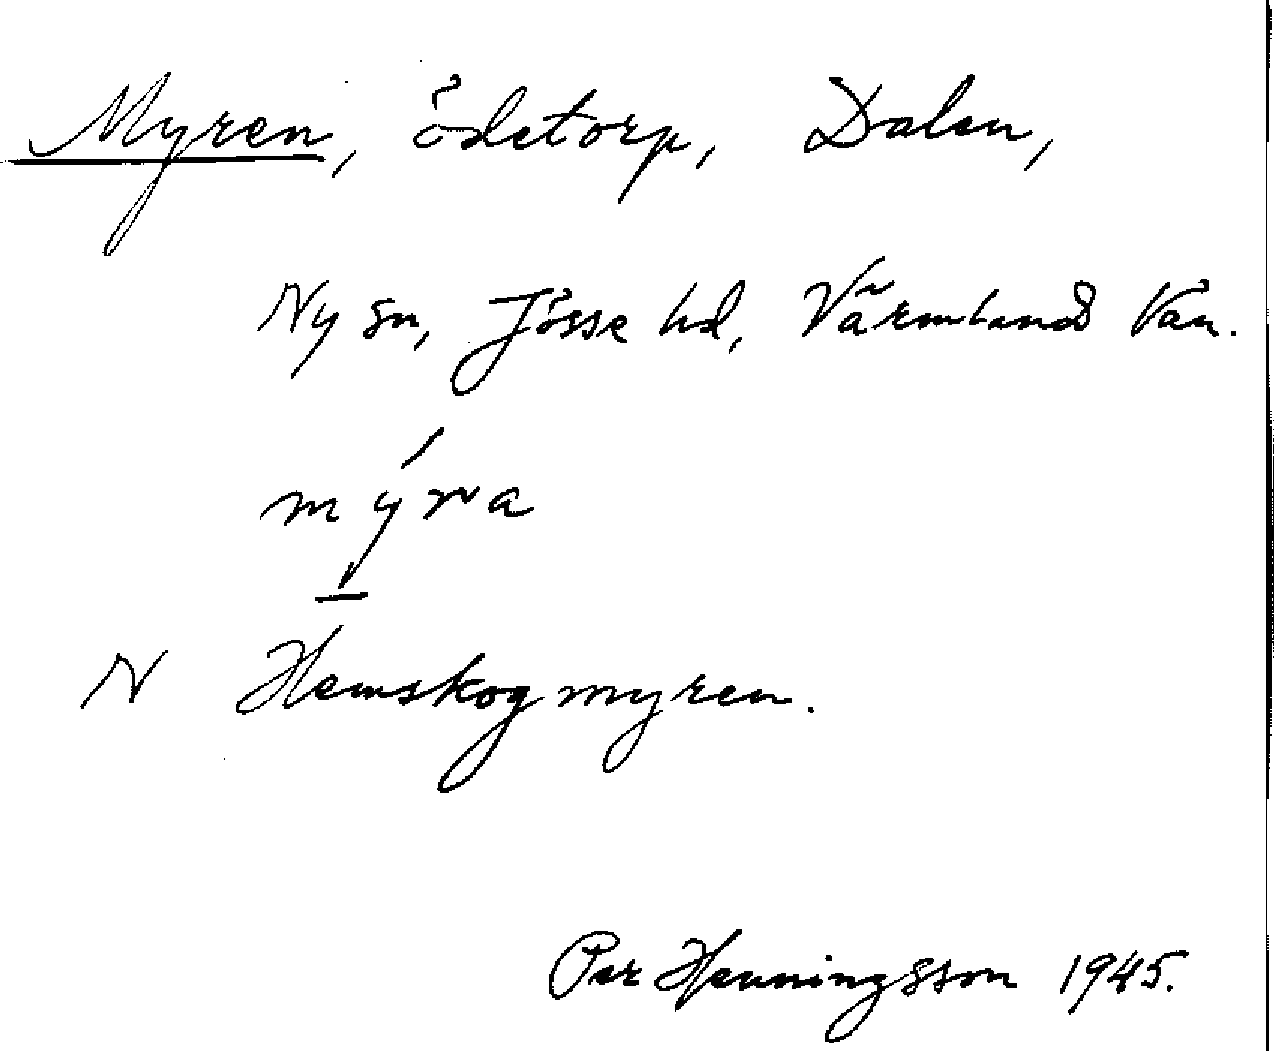 Myren, ödetorp, Dalen,
Ny sn, Jösse hd, Värmland Vän.
mýra
N Hemskogmyren.
Per Henningsson 1945.